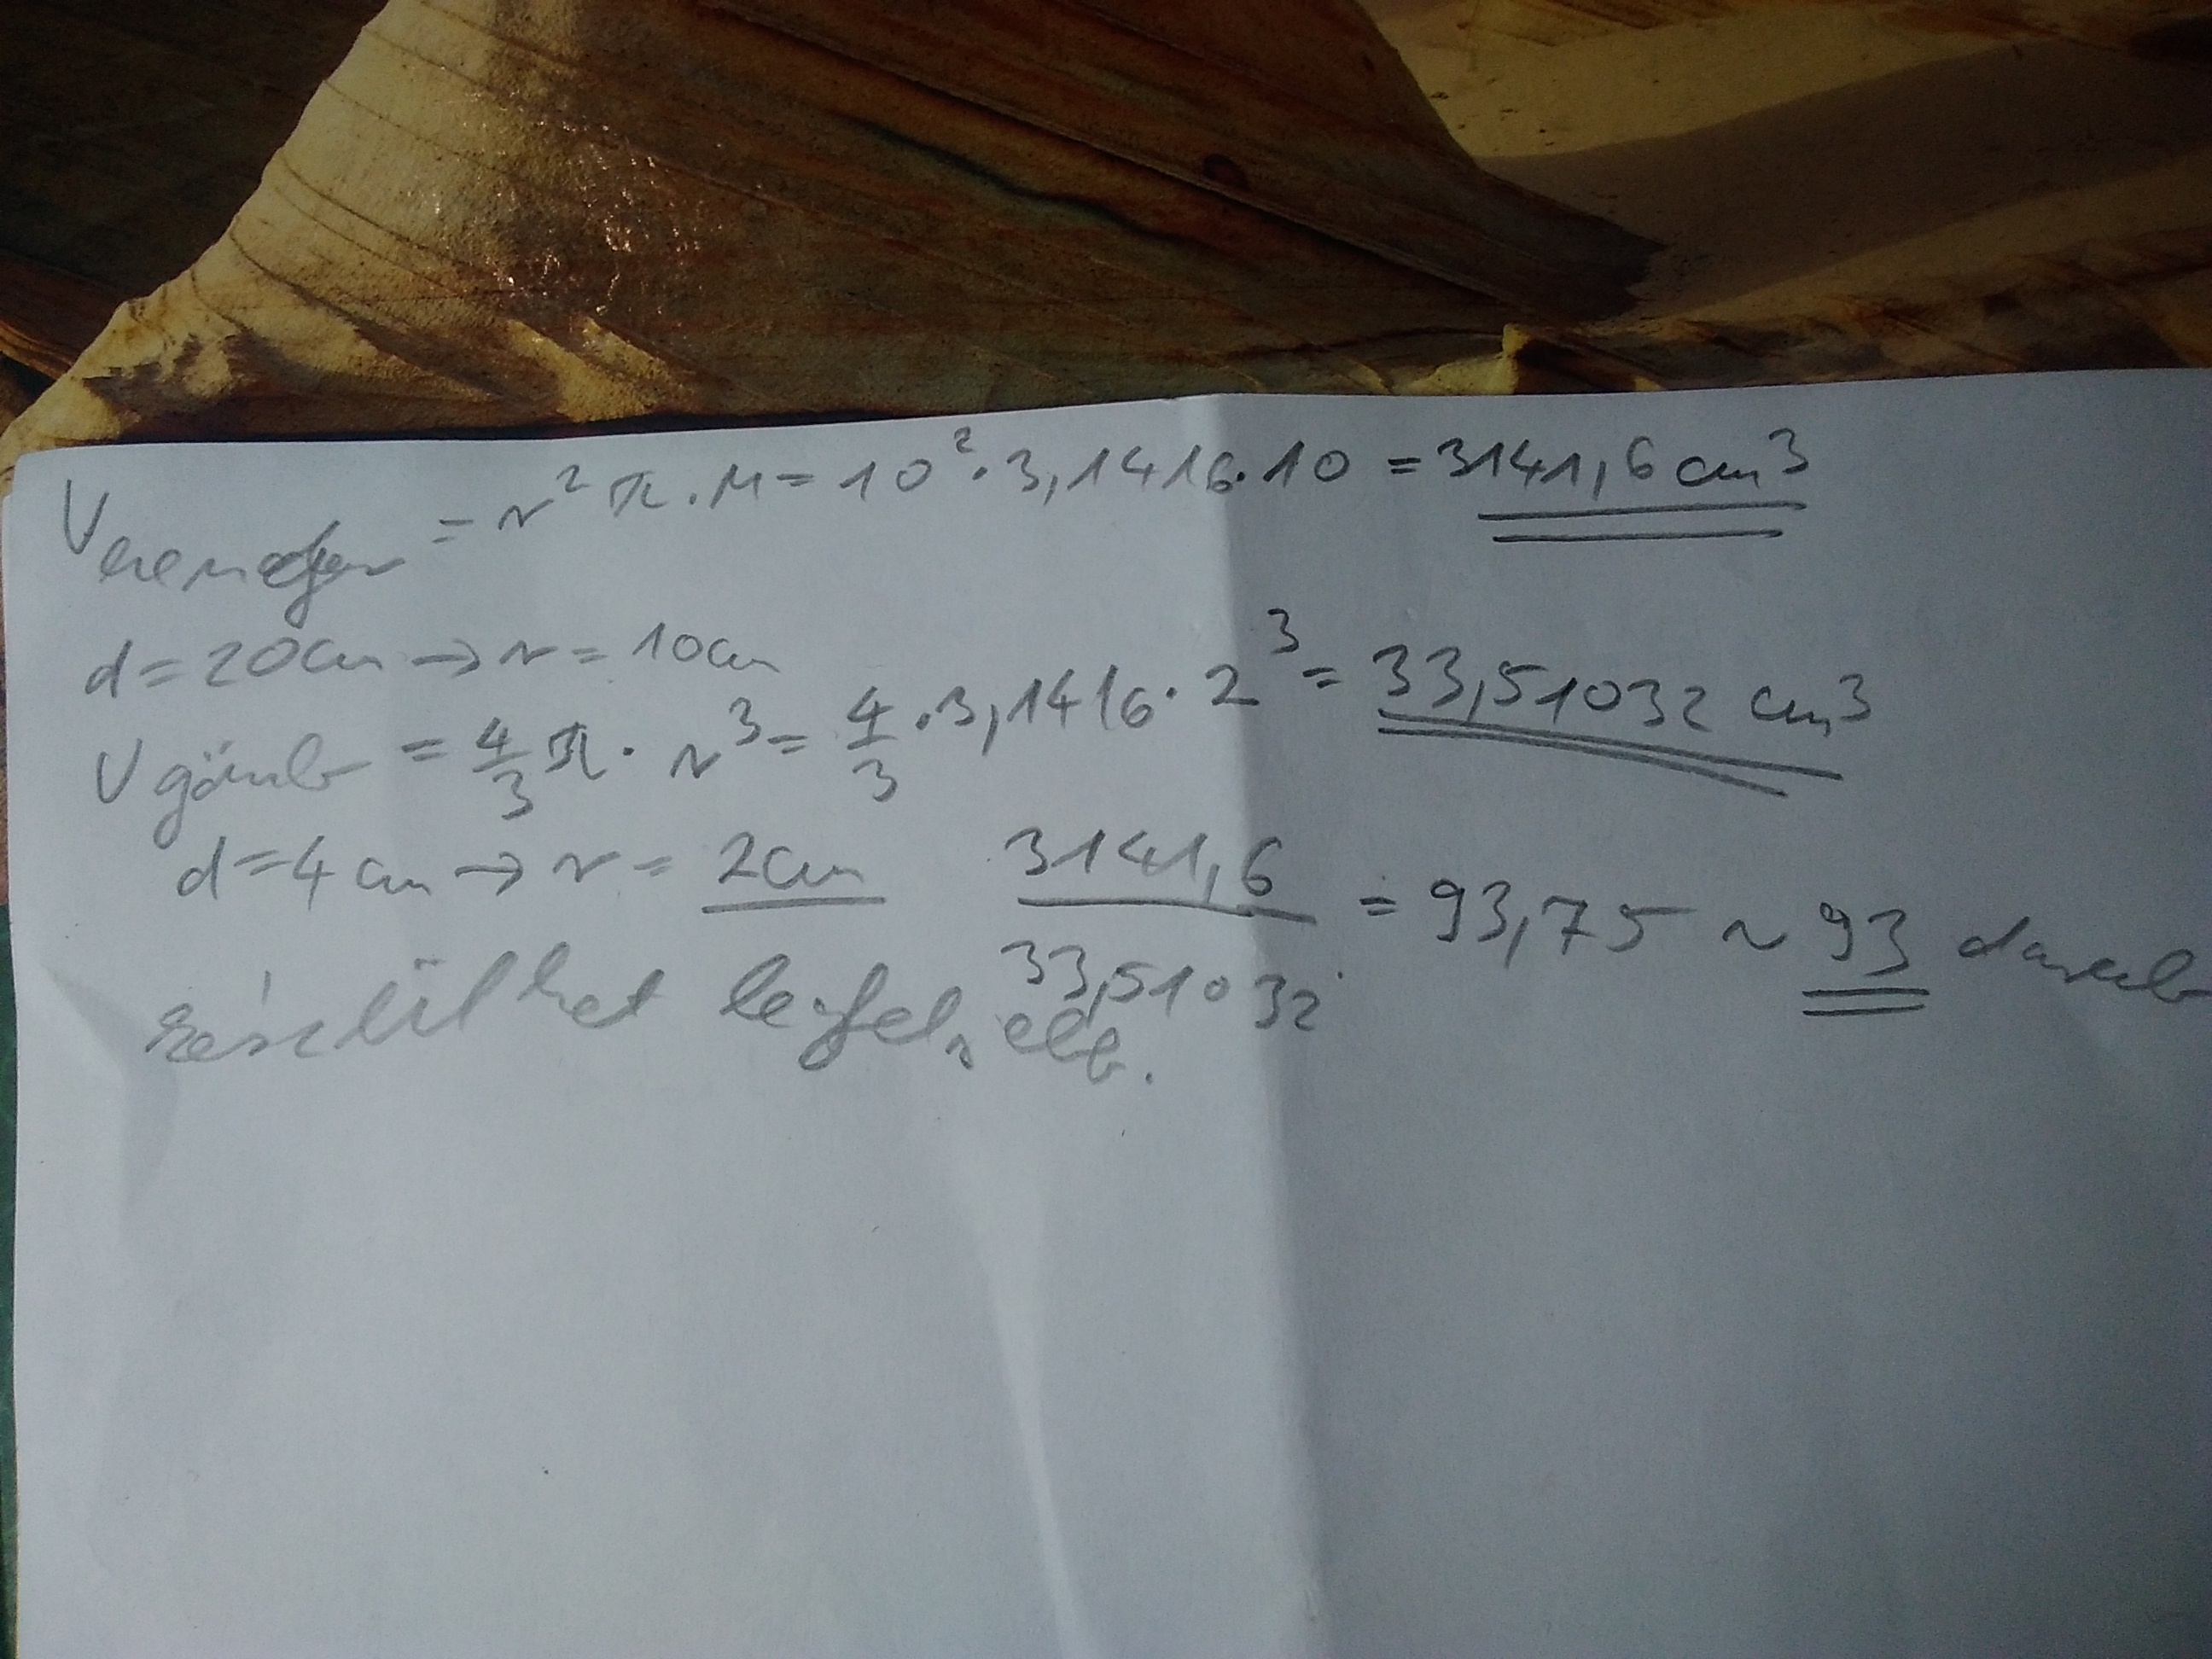 V = r² π · M = 10² · 3,1416 · 10 = 3141,6 cm3
d = 20cm → r = 10cm
V gömb = 4/3 π · r³ = 4/3 · 3,1416 · 2³ = 33,51032 cm3
d = 4 cm → r = 2cm 3141,6 / 33,51032 = 93,75 ~ 93 darab
készülhet legfeljebb.